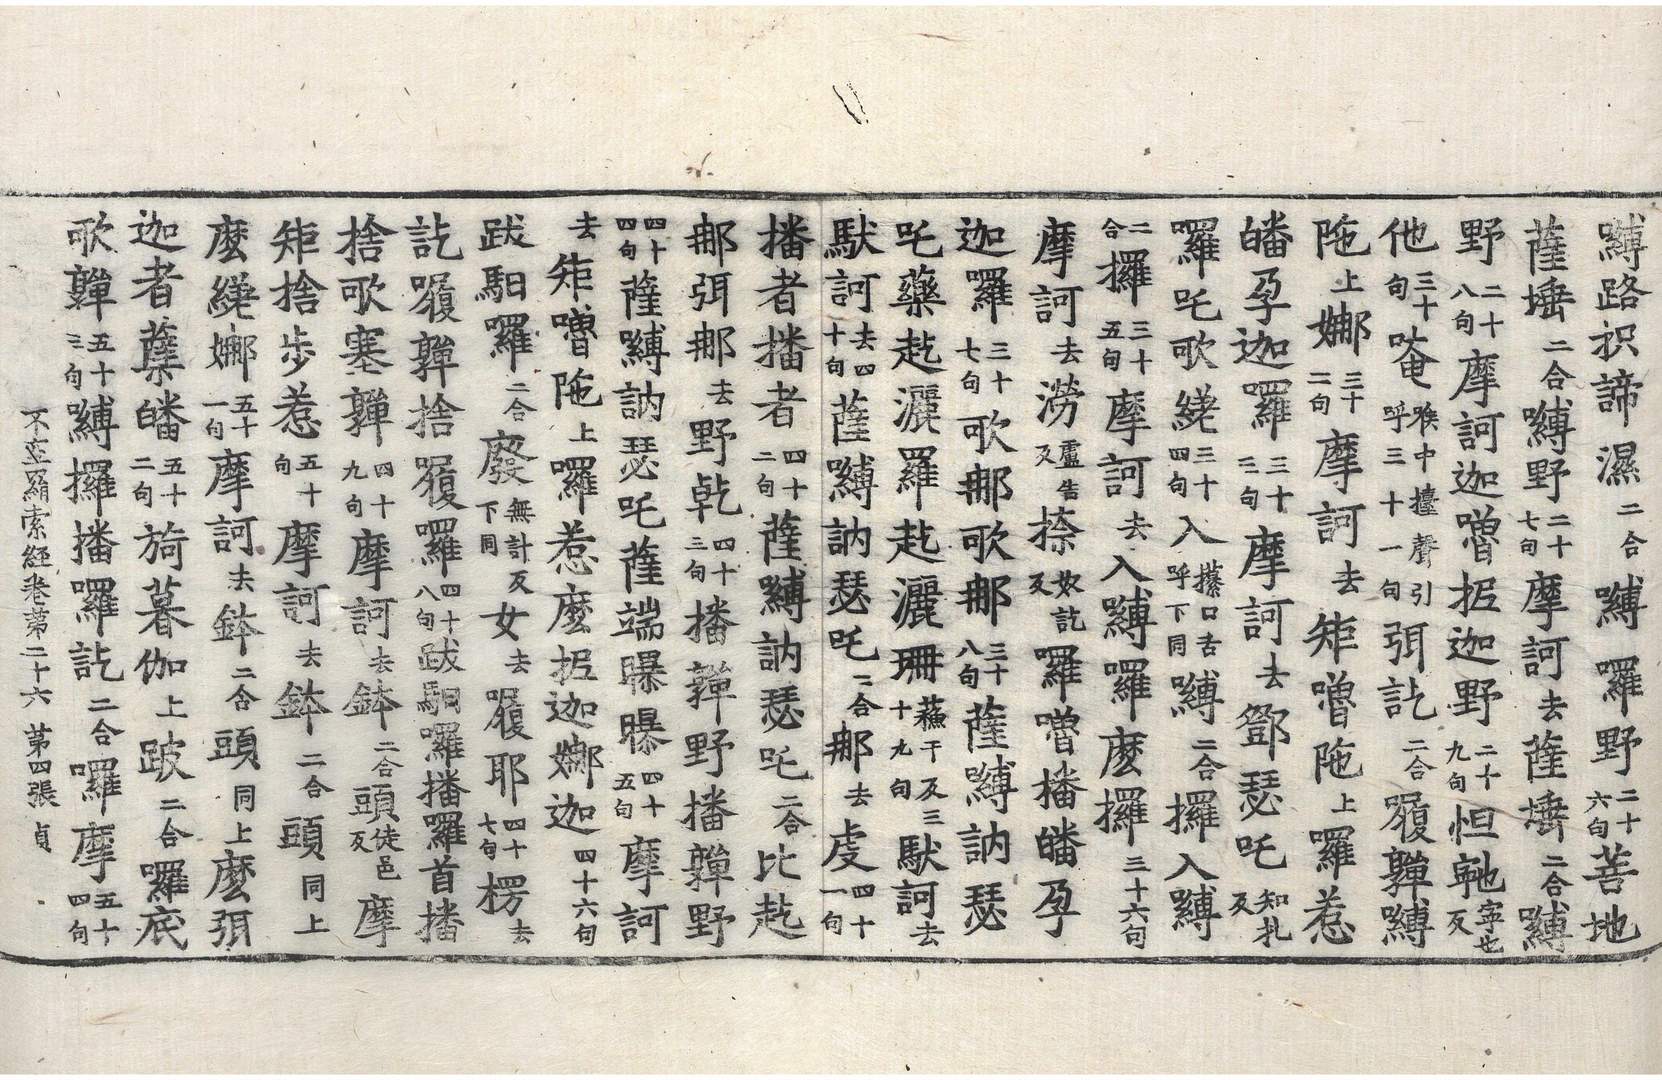 嚩路枳諦濕二合嚩囉野二十六句菩地
薩埵二合嚩野二十七句摩訶去薩埵二合嚩
野二十八句摩訶迦嚕抳迦野二十九句怛𭉨寧也反
他三十句唵喉中擡聲引呼三十一句弭訖二合履亸嚩
陁上娜三十二句摩訶去矩嚕陁上囉惹
皤孕迦囉三十三句摩訶去鄧瑟吒知礼反
囉吒歌㲠三十四句入攥口舌呼下同嚩二合攞入嚩
二合攞三十五句摩訶去入嚩囉麼攞三十六句
摩訶去澇盧告反捺奴訖反囉嚕播皤孕
迦囉三十七句歌那歌那三十八句薩嚩訥瑟
吒藥赴灑羅赴灑珊蘓干反三十九句馱訶去
馱訶去四十句薩嚩訥瑟吒二合那去虔四十一句
播者播者四十二句薩嚩訥瑟吒二合比赴
那弭那去野乹四十三句播亸野播亸野
四十四句薩嚩訥瑟吒薩端曝曝四十五句摩訶
去矩嚕陁上囉惹麼抳迦娜迦四十六句
跋馹囉二合廢無計反下同女去履耶四十七句楞去
訖履亸捨履囉四十八句跋馹囉播囉首播
捨歌塞亸四十九句摩訶去鉢二合頭徒邑反摩
矩捨步惹五十句摩訶去鉢二合頭同上
麼㲠娜五十一句摩訶去鉢二合頭同上麼弭
迦者蘖皤五十二句旖暮伽上跛二合囉底
歌亸五十三句嚩攞播囉訖二合囉摩五十四句
不空羂索經卷第二十六 第四張 貞